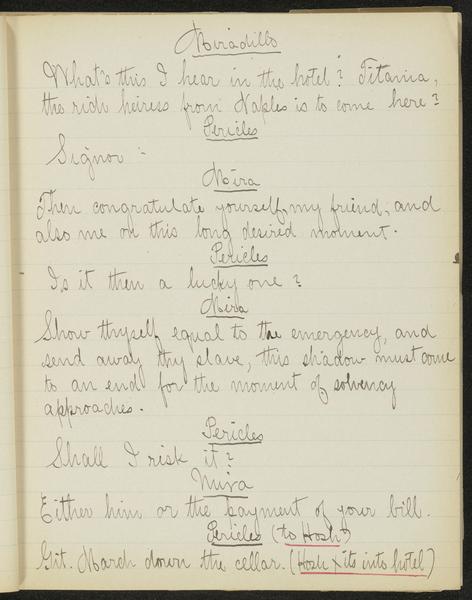 Miradillo
What's this I hear in the hotel? Titania,
the rich heiress from Naples is to come here?
Pericles
Signor :-
Mira
Then congratulate yourself, my friend, and
also me on this long desired moment.
Pericles
Is it then a lucky one?
Mira
Show thyself equal to the emergency, and
send away thy slave, this shadow must come
to an end for the moment of solvency
approaches.
Pericles
Shall I risk it?
Mira
Either him or the payment of your bill.
Pericles (to Hosh)
Git. March down the cellar. (Hosh Xits into hotel)